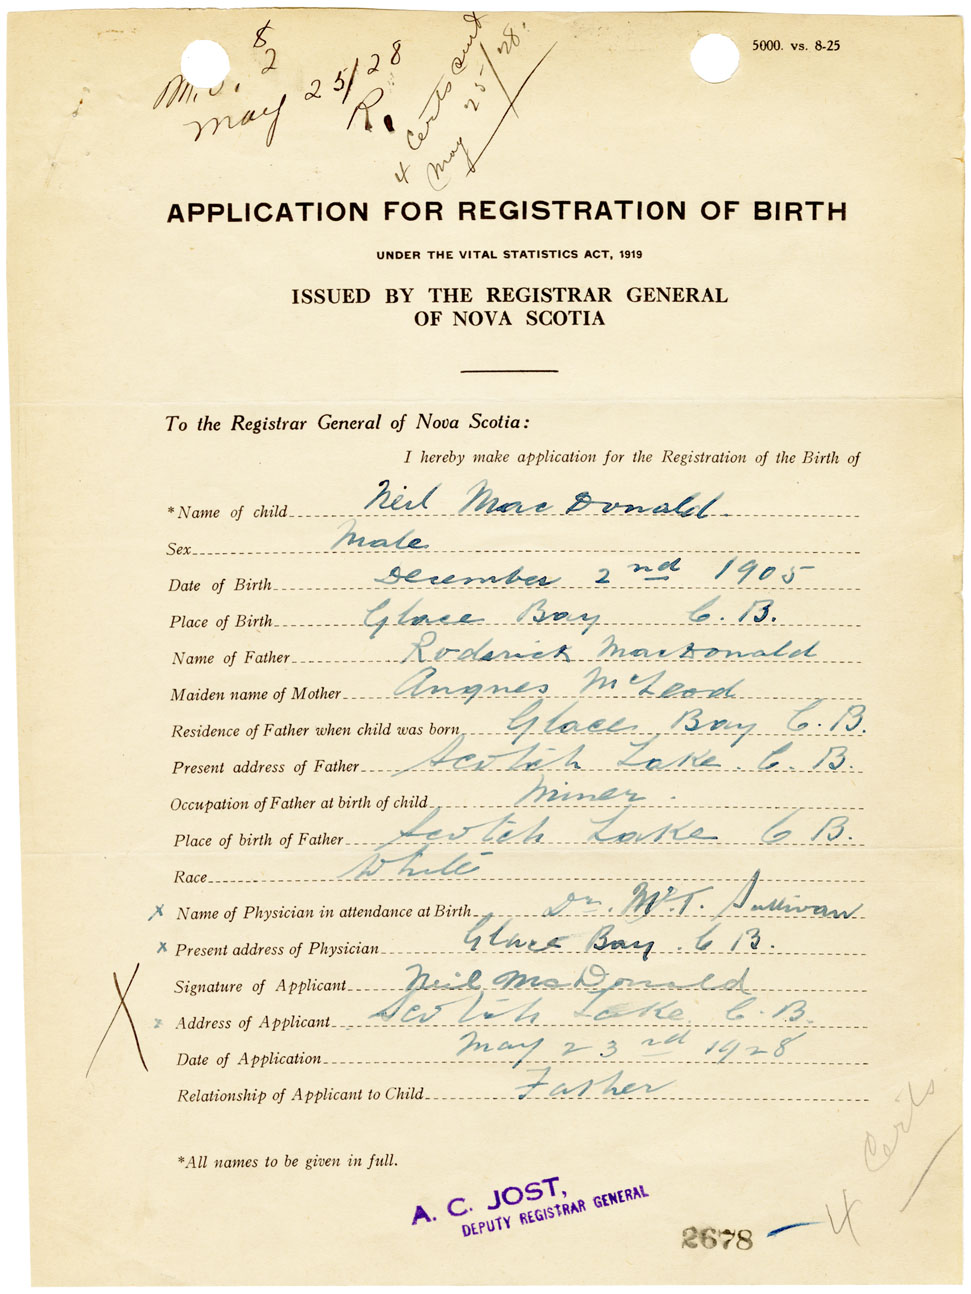 $ 2
5000. vs. 8-25
May 25/28
R.
4 Certs sent
May 25/28.
APPLICATION FOR REGISTRATION OF BIRTH
UNDER THE VITAL STATISTICS ACT, 1919
ISSUED BY THE REGISTRAR GENERAL
OF NOVA SCOTIA
To the Registrar General of Nova Scotia:
I hereby make application for the Registration of the Birth of
*Name of child Neil MacDonald
Sex Male
Date of Birth December 2nd 1905
Place of Birth Glace Bay C.B.
Name of Father Roderick MacDonald
Maiden name of Mother Angnes McLeod
Residence of Father when child was born Glace Bay C.B.
Present address of Father Scotch Lake. C.B.
Occupation of Father at birth of child Miner.
Place of birth of Father Scotch Lake C B.
Race White
x Name of Physician in attendance at Birth Dr. McT. Sullivan
x Present address of Physician Glace Bay. C B.
Signature of Applicant Neil McDonald
x Address of Applicant Scotch Lake. C.B.
X
Date of Application May 23rd 1928
Relationship of Applicant to Child Father
*All names to be given in full.
4 Certs.
A. C. JOST,
DEPUTY REGISTRAR GENERAL
2678